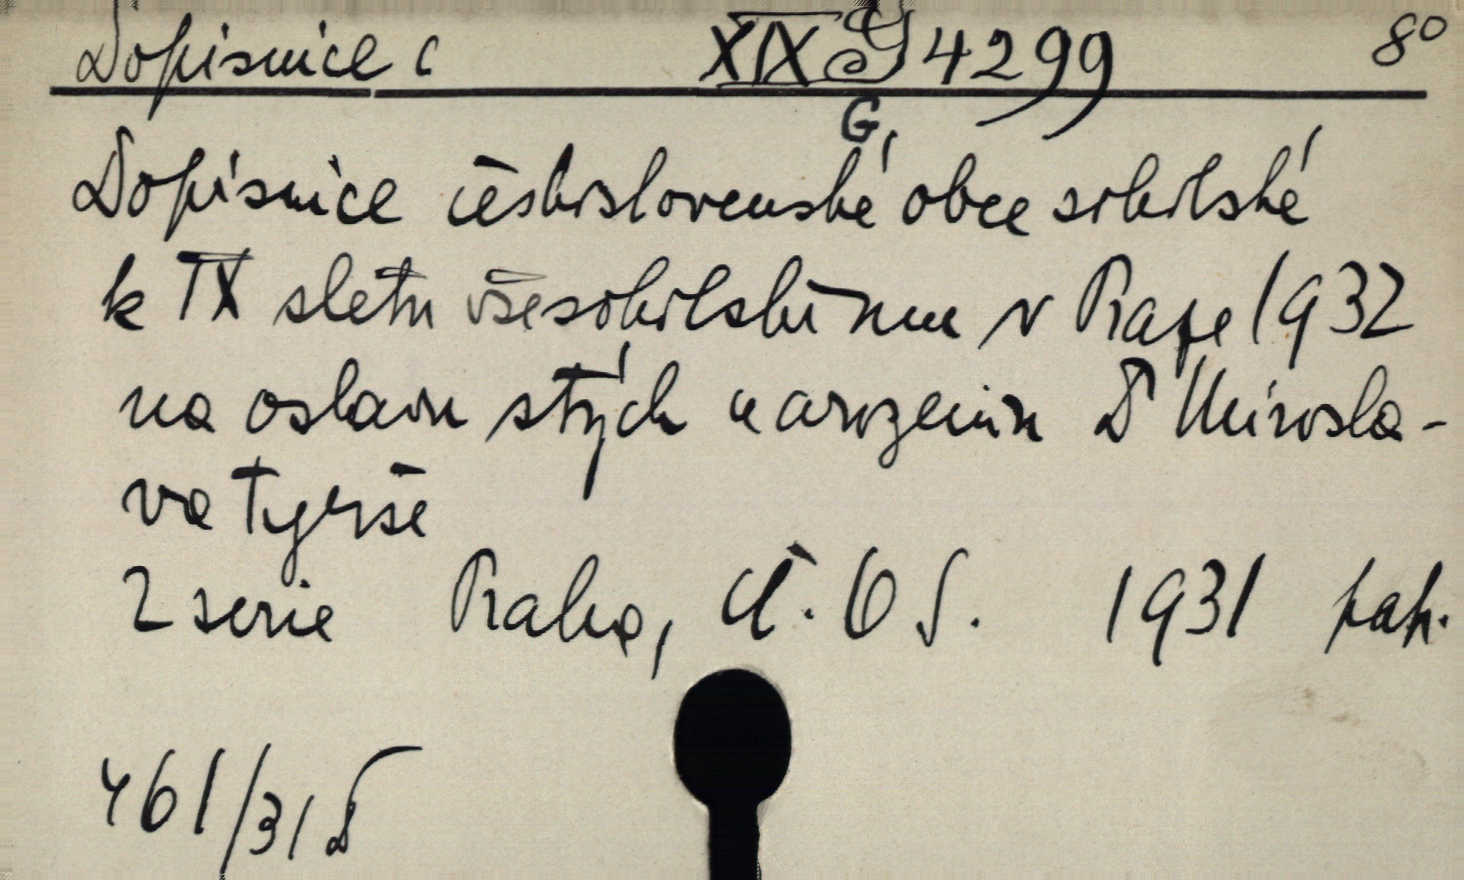 Dopisnice č XIX G 4299 8°
G,
Dopisnice československé obce sokolské
k IX sletu všesokolskému v Praze 1932
na oslavu stých narozenin Dr Mirosla-
va Tyrše
2 serie Praha, Č. O S. 1931 pap.
461/31 D